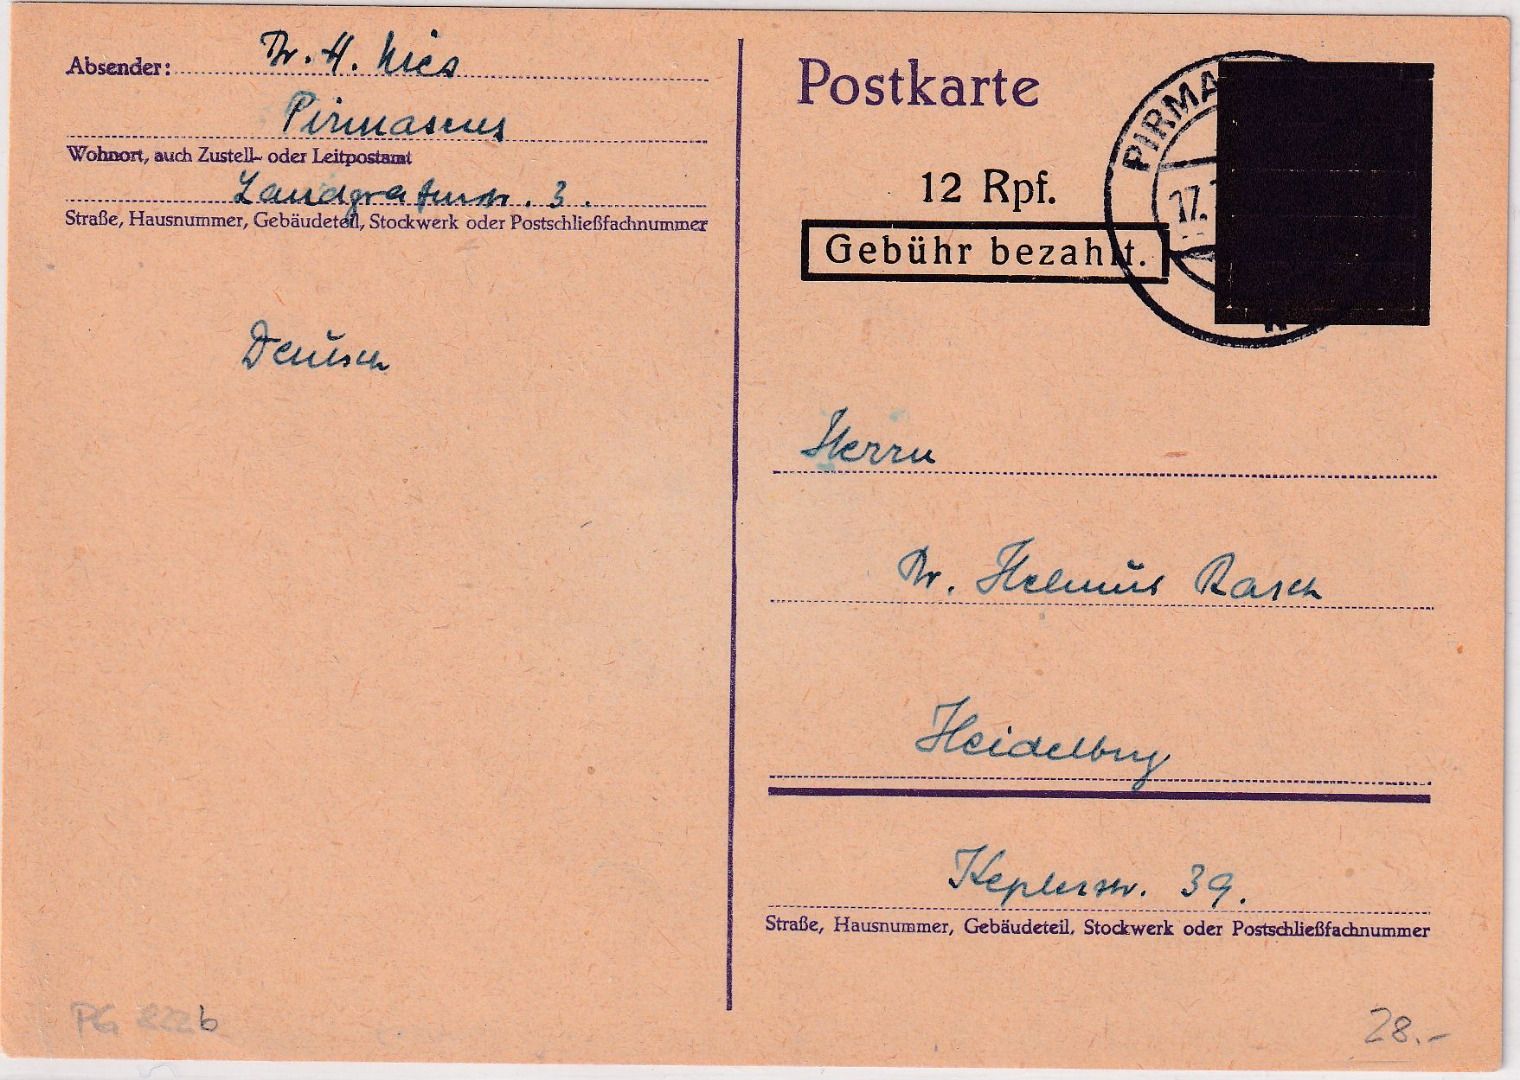 Absender: Dr. H. Nies
Pirmasens
Wohnort, auch Zustell- oder Leitpostamt
Landgrafenstr. 3.
Straße, Hausnummer, Gebäudeteil, Stockwerk oder Postschließfachnummer
Deutsch
Postkarte
12 Rpf.
Gebühr bezahlt.
PIRMA
17.
Herrn
Dr. Helmut Rasch
Heidelberg
Keplerstr. 39.
Straße, Hausnummer, Gebäudeteil, Stockwerk oder Postschließfachnummer
PG 222b
28.-